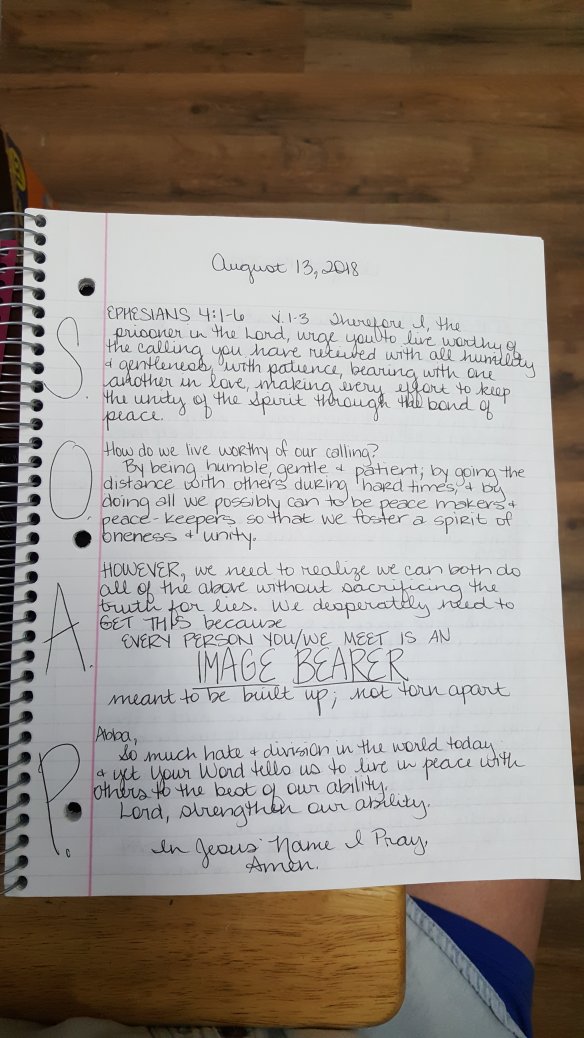 August 13, 2018
S.
EPHESIANS 4:1-6 v.1-3 Therefore I, the
prisoner in the Lord, urge you to live worthy of
the calling you have received with all humility
& gentleness, with patience, bearing with one
another in love, making every effort to keep
the unity of the Spirit through the bond of
peace.
O.
How do we live worthy of our calling?
By being humble, gentle & patient; by going the
distance with others during hard times; & by
doing all we possibly can to be peace makers &
peace-keepers so that we foster a spirit of
oneness & unity.
A.
HOWEVER, we need to realize we can both do
all of the above without sacrificing the
truth for lies. We desperately need to
GET THIS because
EVERY PERSON YOU/WE MEET IS AN
IMAGE BEARER
meant to be built up; not torn apart
P.
Abba,
So much hate & division in the world today
& yet Your Word tells us to live in peace with
others to the best of our ability.
Lord, strengthen our ability.
In Jesus' Name I Pray,
Amen.